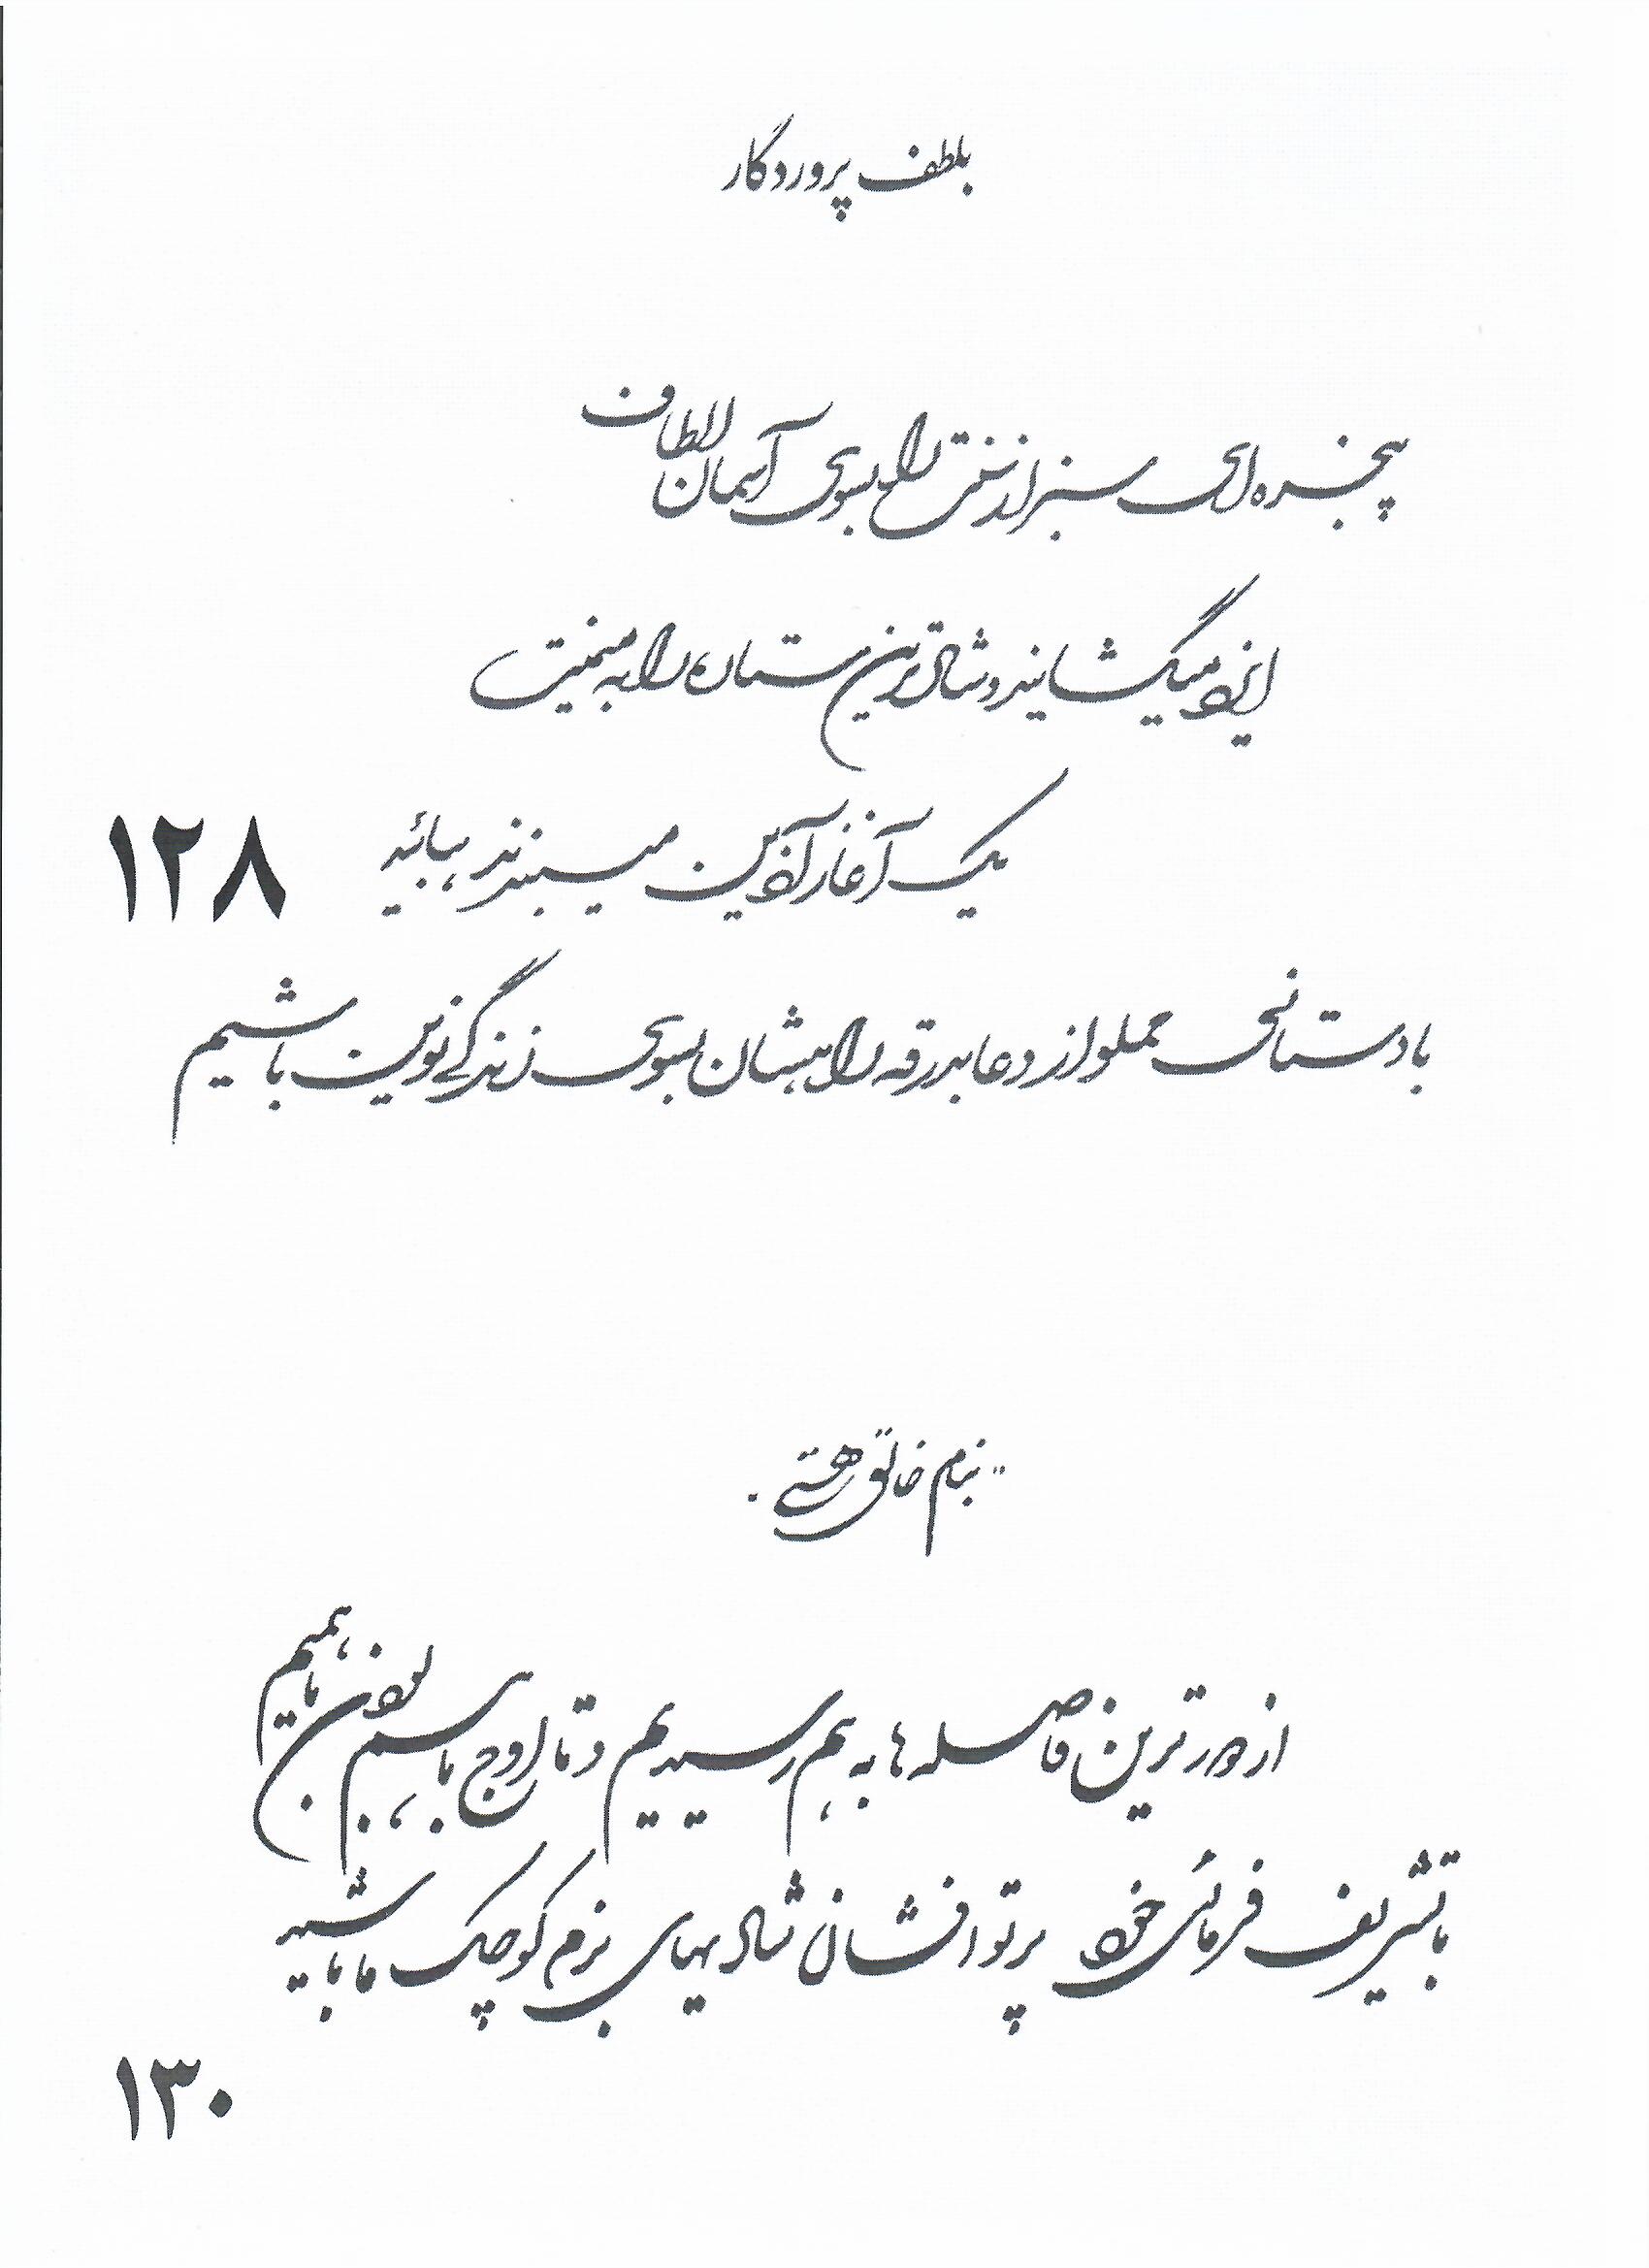 بلطف پروردگار
پنجره‌ای سبز از خوشبختی را بسوی آسمان الطاف
ایزد میگشایند و شادترین ستاره را به میمنت
یک آغاز آذین میبندند، بیائید
۱۲۸
با دستانی مملو از دعا بدرقه راهشان بسوی زندگی نوین باشیم
بنام خالق هستی
از دورترین فاصله‌ها به هم رسیدیم و تا اوج با هم بودن با همیم
با تشریف فرمائی خود پرتو افشان شادیهای بزم کوچک ما باشید
۱۳۰